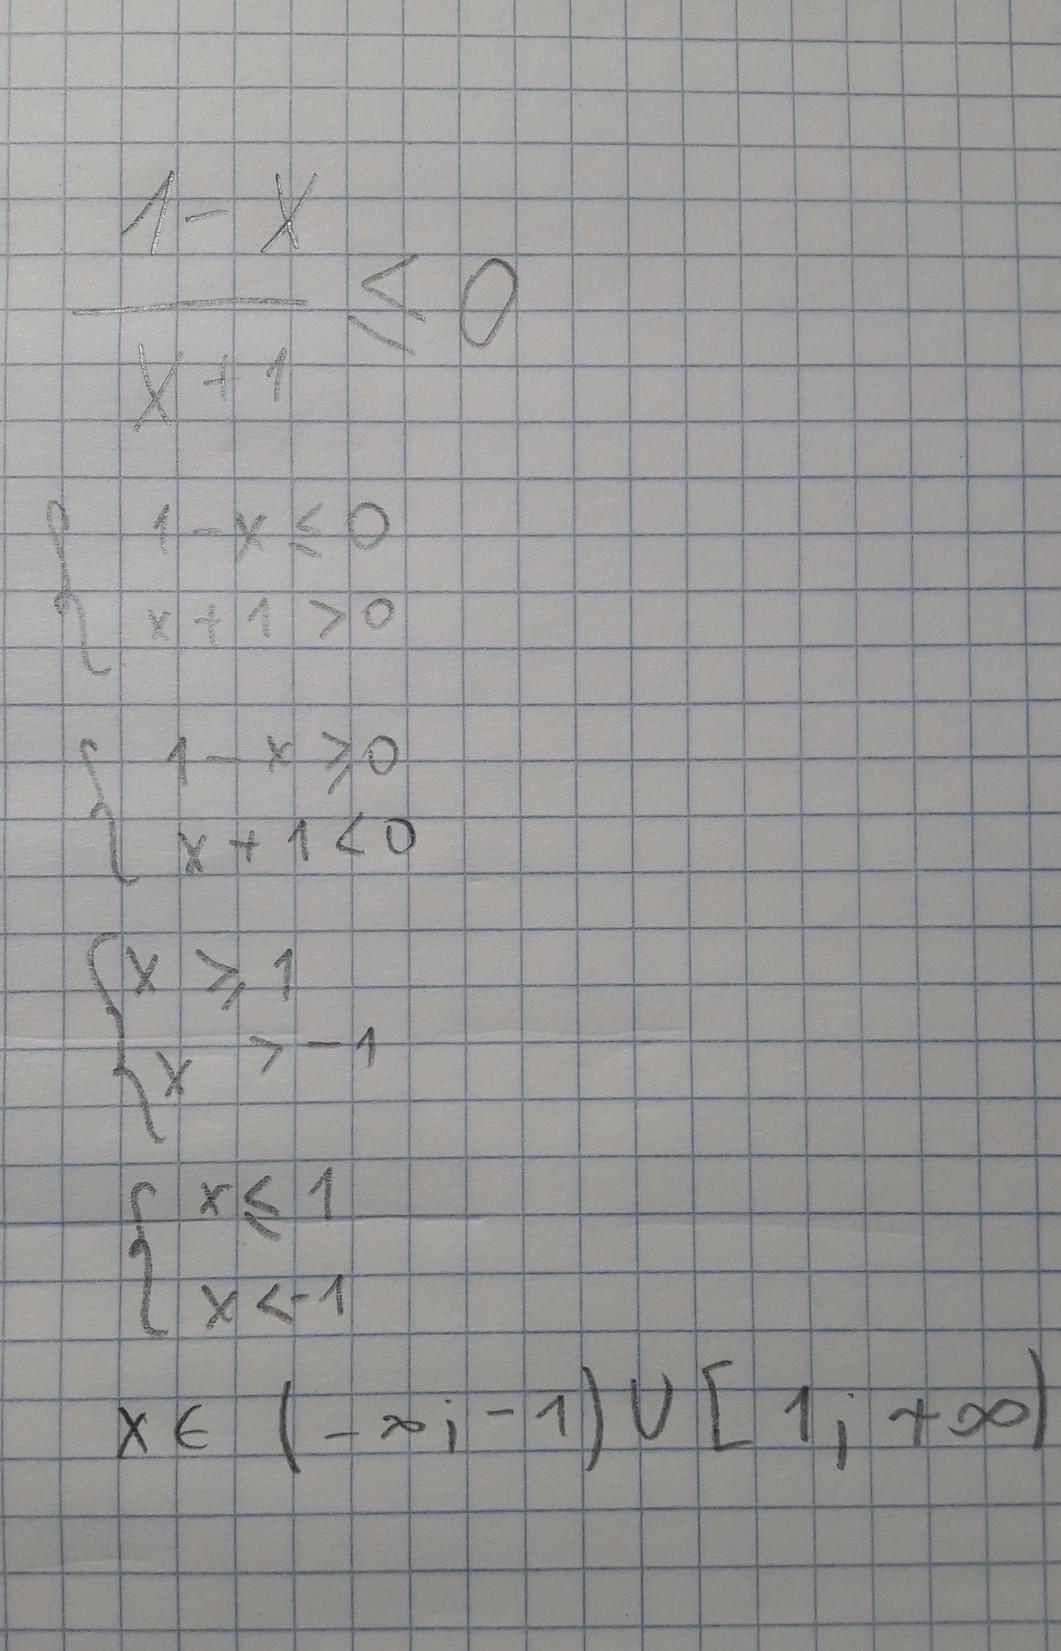 1 - x
x + 1
≤ 0
1 - x ≤ 0
x + 1 > 0
1 - x ≥ 0
x + 1 < 0
x ≥ 1
x > -1
x ≤ 1
x < -1
x ∈ (-∞; -1) ∪ [1; +∞)